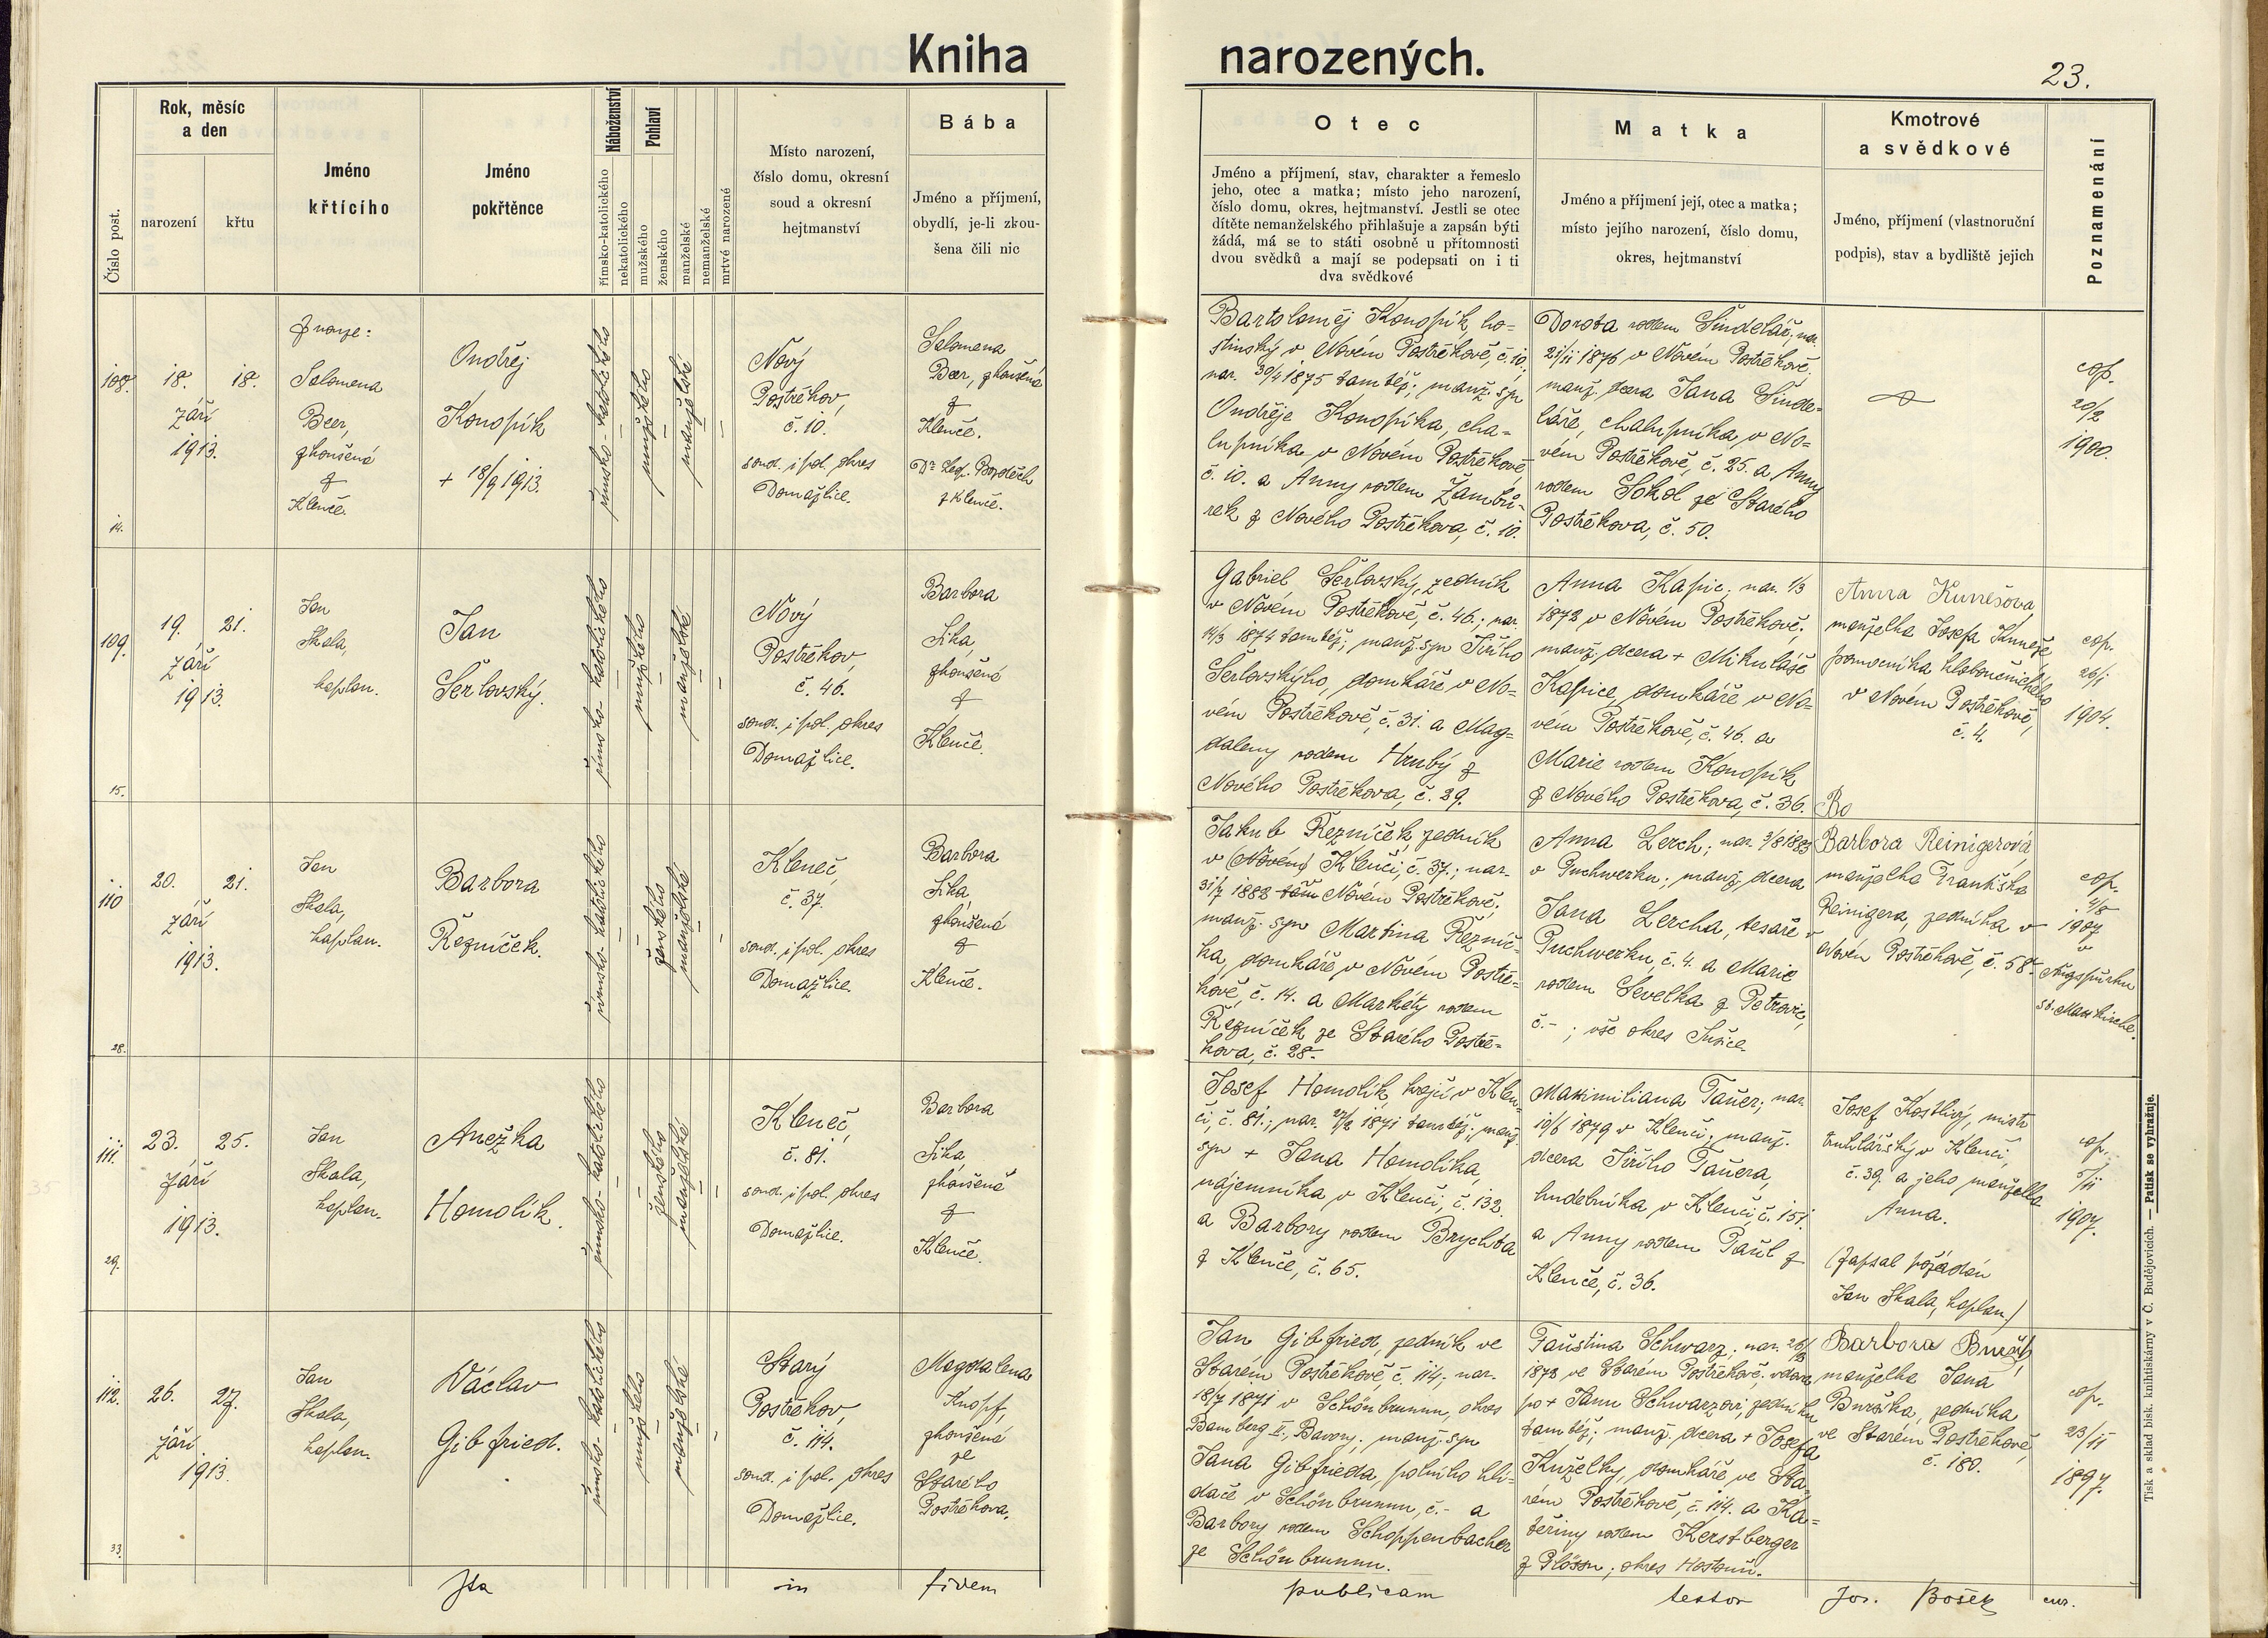 Kniha narozených.
23.
Číslo post.
Rok, měsíc
a den
narození
křtu
Jméno
křtícího
Jméno
pokřtěnce
Náboženství
římsko-katolického
nekatolického
Pohlaví
mužského
ženského
manželské
nemanželské
mrtvě narozené
Místo narození,
číslo domu, okresní
soud a okresní
hejtmanství
Bába
Jméno a příjmení,
obydlí, je-li zkou-
šena čili nic
Otec
Jméno a příjmení, stav, charakter a řemeslo
jeho, otec a matka; místo jeho narození,
číslo domu, okres, hejtmanství. Jestli se otec
dítěte nemanželského přihlašuje a zapsán býti
žádá, má se to státi osobně u přítomnosti
dvou svědků a mají se podepsati on i ti
dva svědkové
Matka
Jméno a příjmení její, otec a matka;
místo jejího narození, číslo domu,
okres, hejtmanství
Kmotrové
a svědkové
Jméno, příjmení (vlastnoruční
podpis), stav a bydliště jejich
Poznamenání
108.
14.
18. 18.
září
1913.
Salomena
Beer,
zkoušená
z
Klenče.
Ondřej
Konopík
+ 18/9 1913.
římsko-katolického
mužského
manželské
Nový
Postřekov,
č. 10.
soud. i pol. okres
Domažlice.
Salomena
Beer, zkoušená
z
Klenče.
z Klenče.
Bartoloměj Konopík, ho-
stinský v Novém Postřekově, č. 10.;
nar. 30/4 1875 tamtéž; manž. syn
Ondřeje Konopíka, cha-
lupníka v Novém Postřekově,
č. 10. a Anny rodem Žambů-
rek z Nového Postřekova, č. 10.
Dorota rodem Šindelář; nar.
21/11 1876 v Novém Postřekově;
manž. dcera Jana Šinde-
láře, chalupníka v No-
vém Postřekově, č. 25. a Anny
rodem Sokol ze Starého
Postřekova, č. 50.
cop.
20/2
1900.
109.
15.
19. 21.
září
1913.
Jan
Skala,
kaplan.
Jan
Šerlovský.
římsko-katolického
mužského
manželské
Nový
Postřekov,
č. 46.
soud. i pol. okres
Domažlice.
Barbora
Sika,
zkoušená
z
Klenče.
Gabriel Šerlovský, zedník
v Novém Postřekově, č. 46.; nar.
14/3 1874 tamtéž; manž. syn Jiřího
Šerlovskýho, domkáře v No-
vém Postřekově, č. 31. a Mag-
daleny rodem Hrubý z
Nového Postřekova, č. 29.
Anna Kapic; nar. 1/3
1872 v Novém Postřekově;
manž. dcera + Mikuláše
Kapice, domkáře v No-
vém Postřekově, č. 46. a
Marie rodem Konopík
z Nového Postřekova, č. 36.
Anna Kunešova,
manželka Josefa Kuneše
pomocníka kloboučnického
v Novém Postřekově,
č. 4.
Bo
cop.
26/1
1904.
110
28.
20. 21.
září
1913.
Jan
Skala,
kaplan.
Barbora
Řezníček.
římsko-katolického
ženského
manželské
Kleneč,
č. 37.
soud. i pol. okres
Domažlice.
Barbora
Sika,
zkoušená
z
Klenče.
Jakub Řezníček, zedník
v (Novém) Klenči, č. 37.; nar.
31/7 1882 tam Novém Postřekově;
manž. syn Martina Řezníč-
ka, domkáře v Novém Postře-
kově, č. 14. a Markéty rodem
Řezníček ze Starého Postře-
kova, č. 28.
Anna Lerch; nar. 3/8 1883
v Puchwerku; manž. dcera
Jana Lercha, tesaře v
Puchwerku, č. 4. a Marie
rodem Sevelka z Petrovic,
č.-; vše okres Sušice.
Barbora Reinigerová,
manželka Františka
Reinigera, zedníka v
Novém Postřekově, č. 58.
cop.
4/8
1907
v
Augspurku
St. Max kirche.
111.
29.
23. 25.
září
1913.
Jan
Skala,
kaplan.
Anežka
Homolík.
římsko-katolického
ženského
manželské
Kleneč,
č. 81.
soud. i pol. okres
Domažlice.
Barbora
Sika,
zkoušená
z
Klenče.
Josef Homolík, krejčí v Klen-
či, č. 81.; nar. 27/2 1871 tamtéž; manž.
syn + Jana Homolíka,
nájemníka v Klenči, č. 132.
a Barbory rodem Brychta
z Klenče, č. 65.
Maximiliana Tauer; nar.
10/6 1879 v Klenči; manž.
dcera Jiřího Tauera,
hudebníka v Klenči, č. 151.
a Anny rodem Paul z
Klenče, č. 36.
Josef Kostlivý, mistr
truhlářský v Klenči,
č. 39. a jeho manželka
Anna.
(Zapsal požádán
Jan Skala, kaplan.)
cop.
5/11
1907.
112.
33.
26. 27.
září
1913.
Jan
Skala,
kaplan.
Václav
Gibfried.
římsko-katolického
mužského
manželské
Starý
Postřekov,
č. 114.
soud. i pol. okres
Domažlice.
Magdalena
Knopf,
zkoušená
ze
Starého
Postřekova.
Jan Gibfried, zedník ve
Starém Postřekově, č. 114; nar.
18/7 1871 v Schönbrunnu, okres
Bamberg II., Bavory; manž. syn
Jana Gibfrieda, polního hlí-
dače v Schönbrunnu, č.- a
Barbory rodem Schoppenbacher
ze Schönbrunnu.
Faustina Schwarz; nar. 26/3
1872 ve Starém Postřekově; vdova
po + Janu Schwarzovi, zedníku
tamtéž; manž. dcera + Josefa
Kuželky, domkáře ve Sta-
rém Postřekově, č. 114. a Ka-
teřiny rodem Kerstberger
z Plössu; okres Hostouň.
Barbora
manželka Jana
Buršíka, zedníka
ve Starém Postřekově,
č. 180.
cop.
23/11
1897.
Ita in fidem publicam testor Jos. Bošek cur.
Tisk a sklad bisk. knihtiskárny v Č. Budějovicích. — Patisk se vyhražuje.